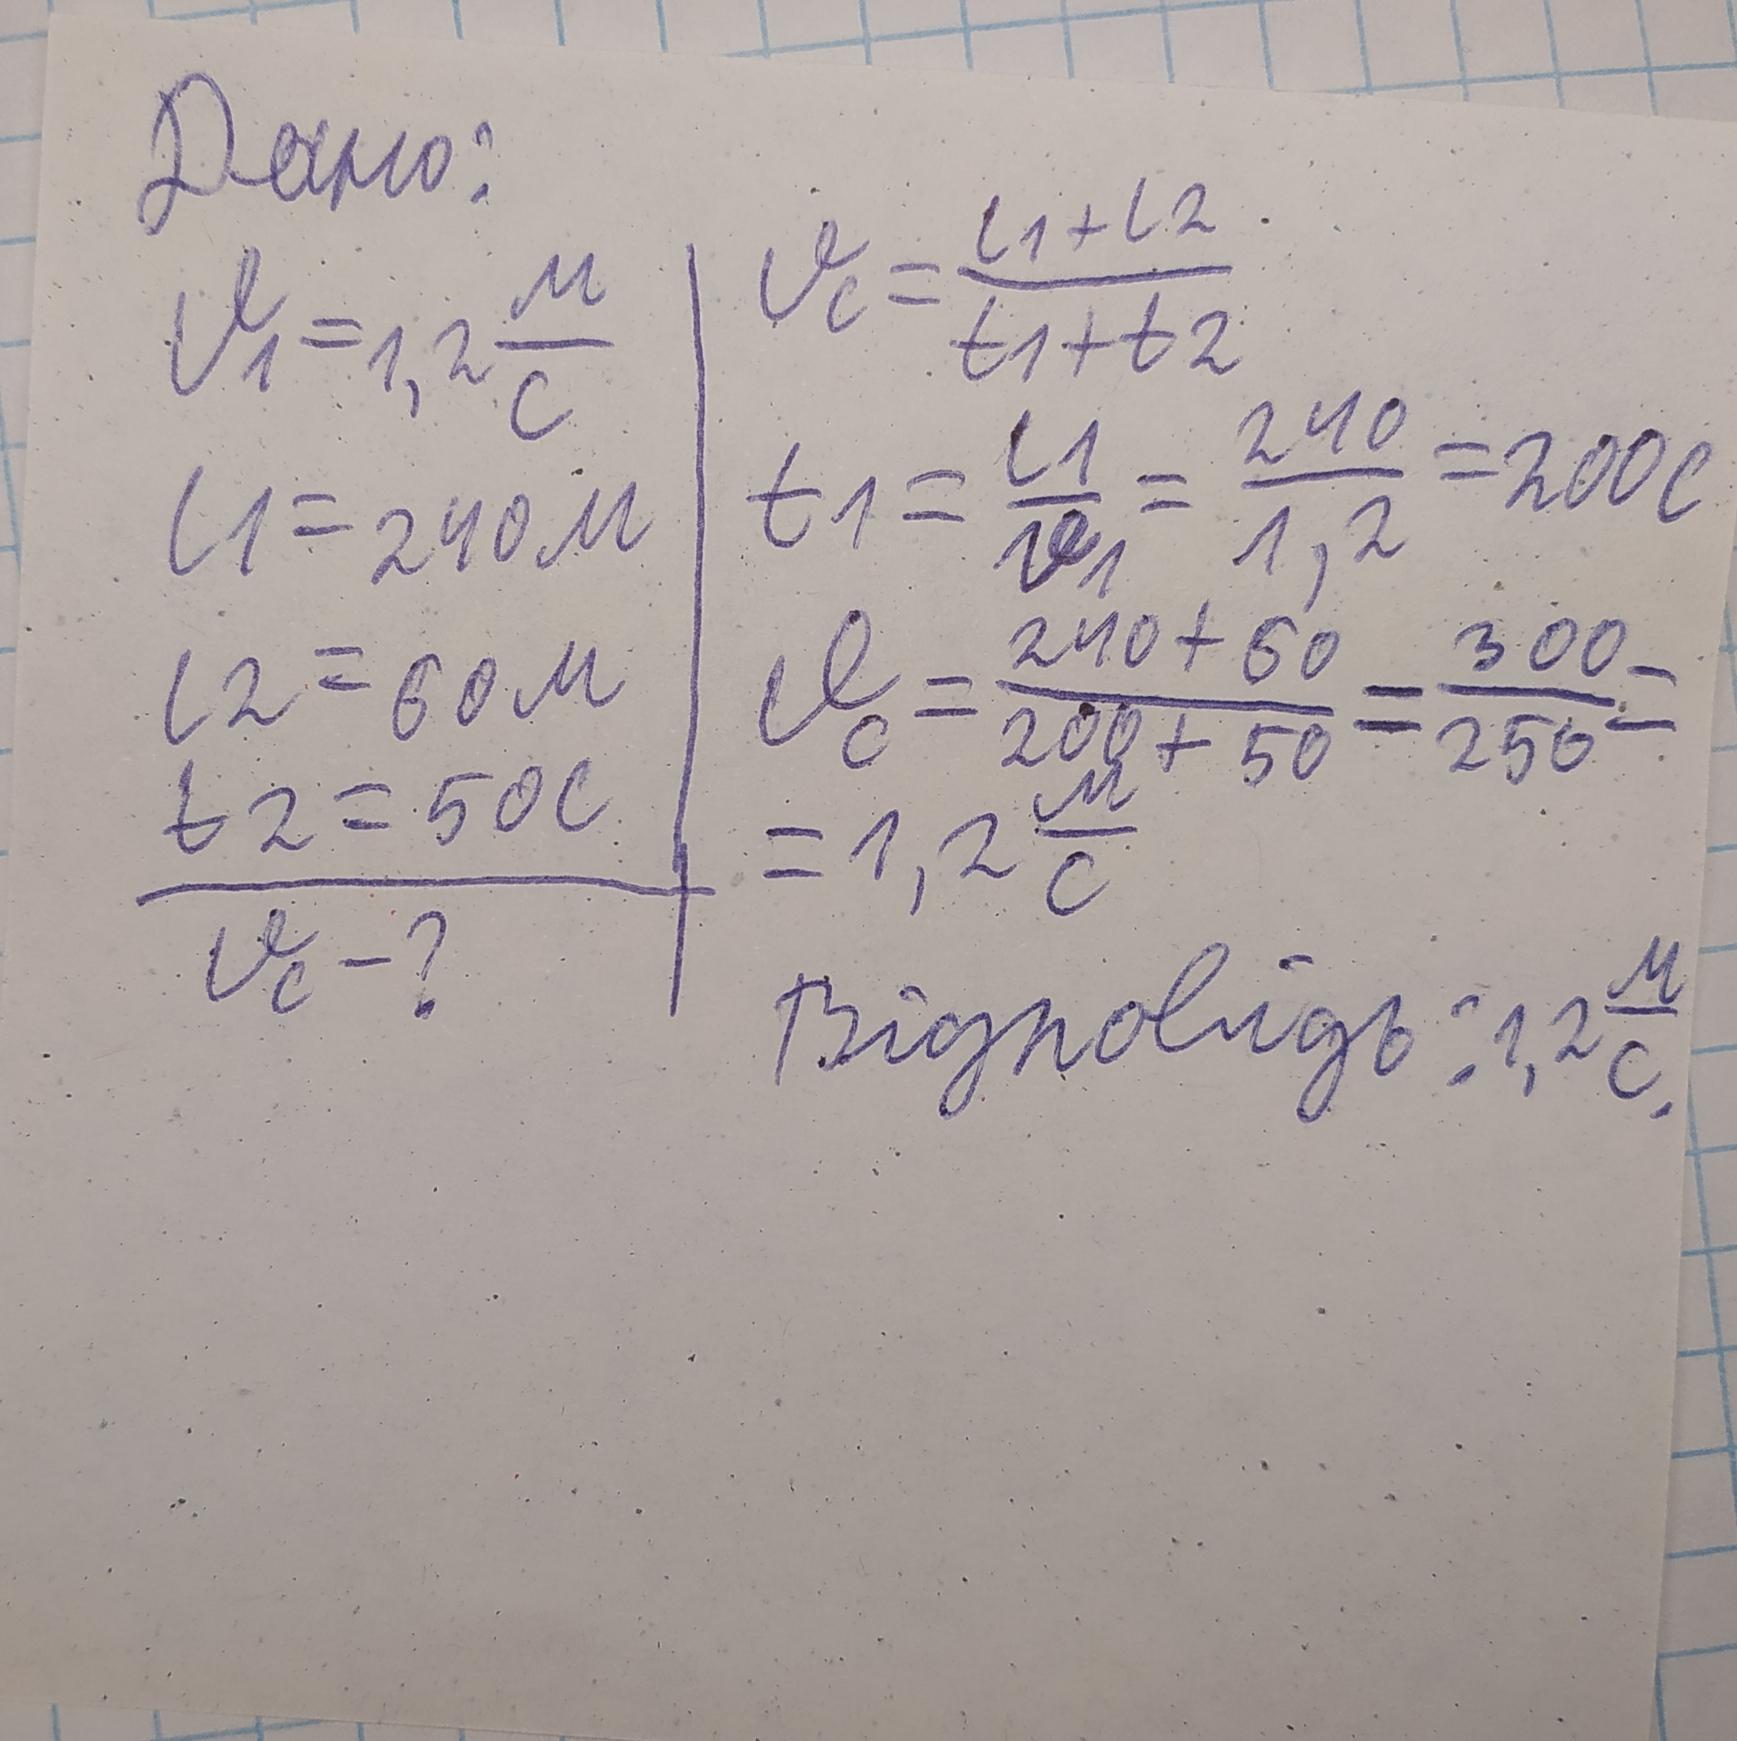 Дано:
υ1 = 1,2 м/с
l1 = 240 м
l2 = 60 м
t2 = 50 с
υc - ?
υc = (l1 + l2)/(t1 + t2)
t1 = l1/υ1 = 240/1,2 = 200 с
υc = (240 + 60)/(200 + 50) = 300/250 =
= 1,2 м/с
Відповідь: 1,2 м/с.